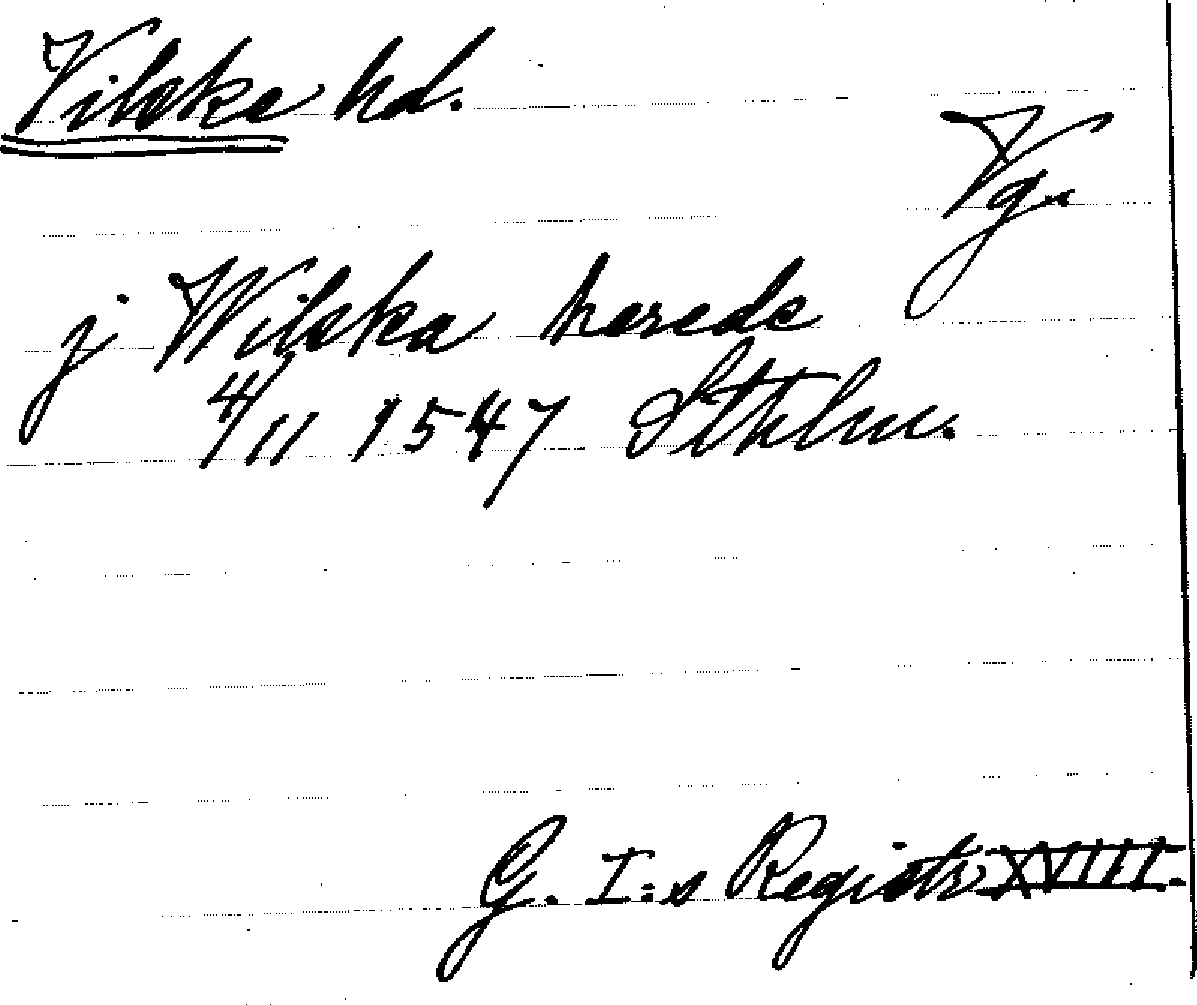 Vilske hd.
Vg.
j Wilska herede
4/11 1547 Sthlm.
G. I:s Registr. XVIII.